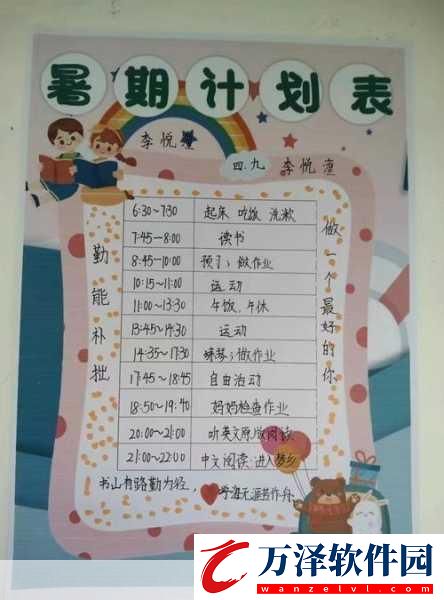 暑期计划表
李悦潼
四.九 李悦潼
勤能补拙
做一个最好的你
6:30~7:30 起床 吃饭 洗漱
7:45—8:00 读书
8:45~10:00 预习;做作业
10:15~11:00 运动
11:00~13:30 午饭,午休
13:45~14:30 运动
14:35~17:30 练琴;做作业
17:45~18:45 自由活动
18:50~19:40 妈妈检查作业
20:00~21:00 听英文原版阅读
21:00~22:00 中文阅读 进入梦乡
书山有路勤为径, 学海无涯苦作舟。
万泽软件园
www.wanzelvl.com